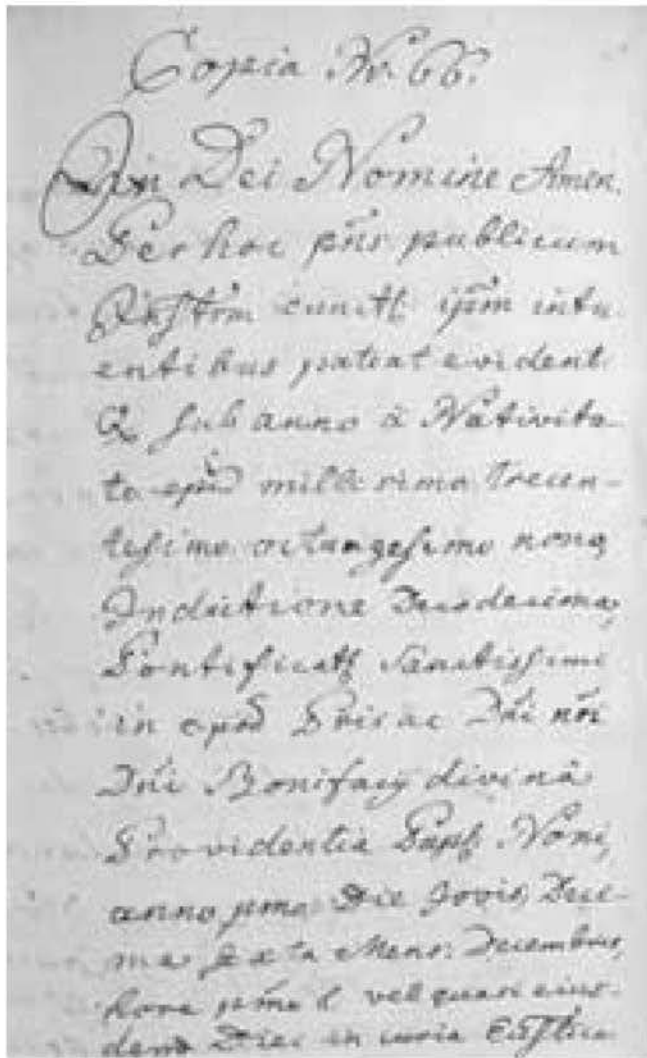 Copia No. 66.
In Dei Nomine Amen.
Per hoc pñs publicum
Instrm cunctis ipm intu
entibus pateat evident.
Q sub anno à Nativita-
te ejusd millesimo trecen-
tesimo octuagesimo nono,
Indictione Duodecima,
Pontificats Sanctissimi
in Patris ac Dñi nri
Dñi Bonifacij divinâ
Providentia Papæ Noni,
anno pmo, Die Jovis, Deci-
ma sexta Mens: Decembris,
hora pma l vel quasi ejus-
dem Diei in curia